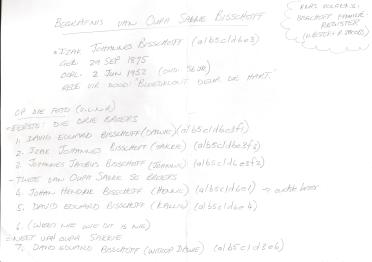 BEGRAFNIS VAN OUPA SAKKIE BISSCHOFF
KODES VOLGENS
BISSCHOFF FAMILIE
REGISTER
IZAK JOHANNES BISSCHOFF (a1b5c1d6e3)
GEB: 29 SEP 1875
OORL: 2 JUN 1952
REDE VIR DOOD: "BLOEDKLONT DEUR DIE HART."
OP DIE FOTO (V.L.N.R.)
- EERSTE: DIE DRIE BROERS
1. DAVID EDUARD BISSCHOFF (DAWIE) (a1b5c1d6e3f1)
2. IZAK JOHANNES BISSCHOFF (SAKKIE) (a1b5c1d6e3f2)
3. JOHANNES JACOBUS BISSCHOFF (JOHANNES) (a1b5c1d6e3f3)
- TWEE VAN OUPA SAKKIE SE BROERS
4. JOHAN HENDRIK BISSCHOFF (HENNIE) (a1b5c1d6e1) →
5. DAVID EDUARD BISSCHOFF (KALLIE) (a1b5c1d6e4)
6. (WEET NIE WIE DIT IS NIE)
NEEF VAN OUPA SAKKIE
7. DAVID EDUARD BISSCHOFF (WITKOP DAWIE) (a1b5c1d3e6)